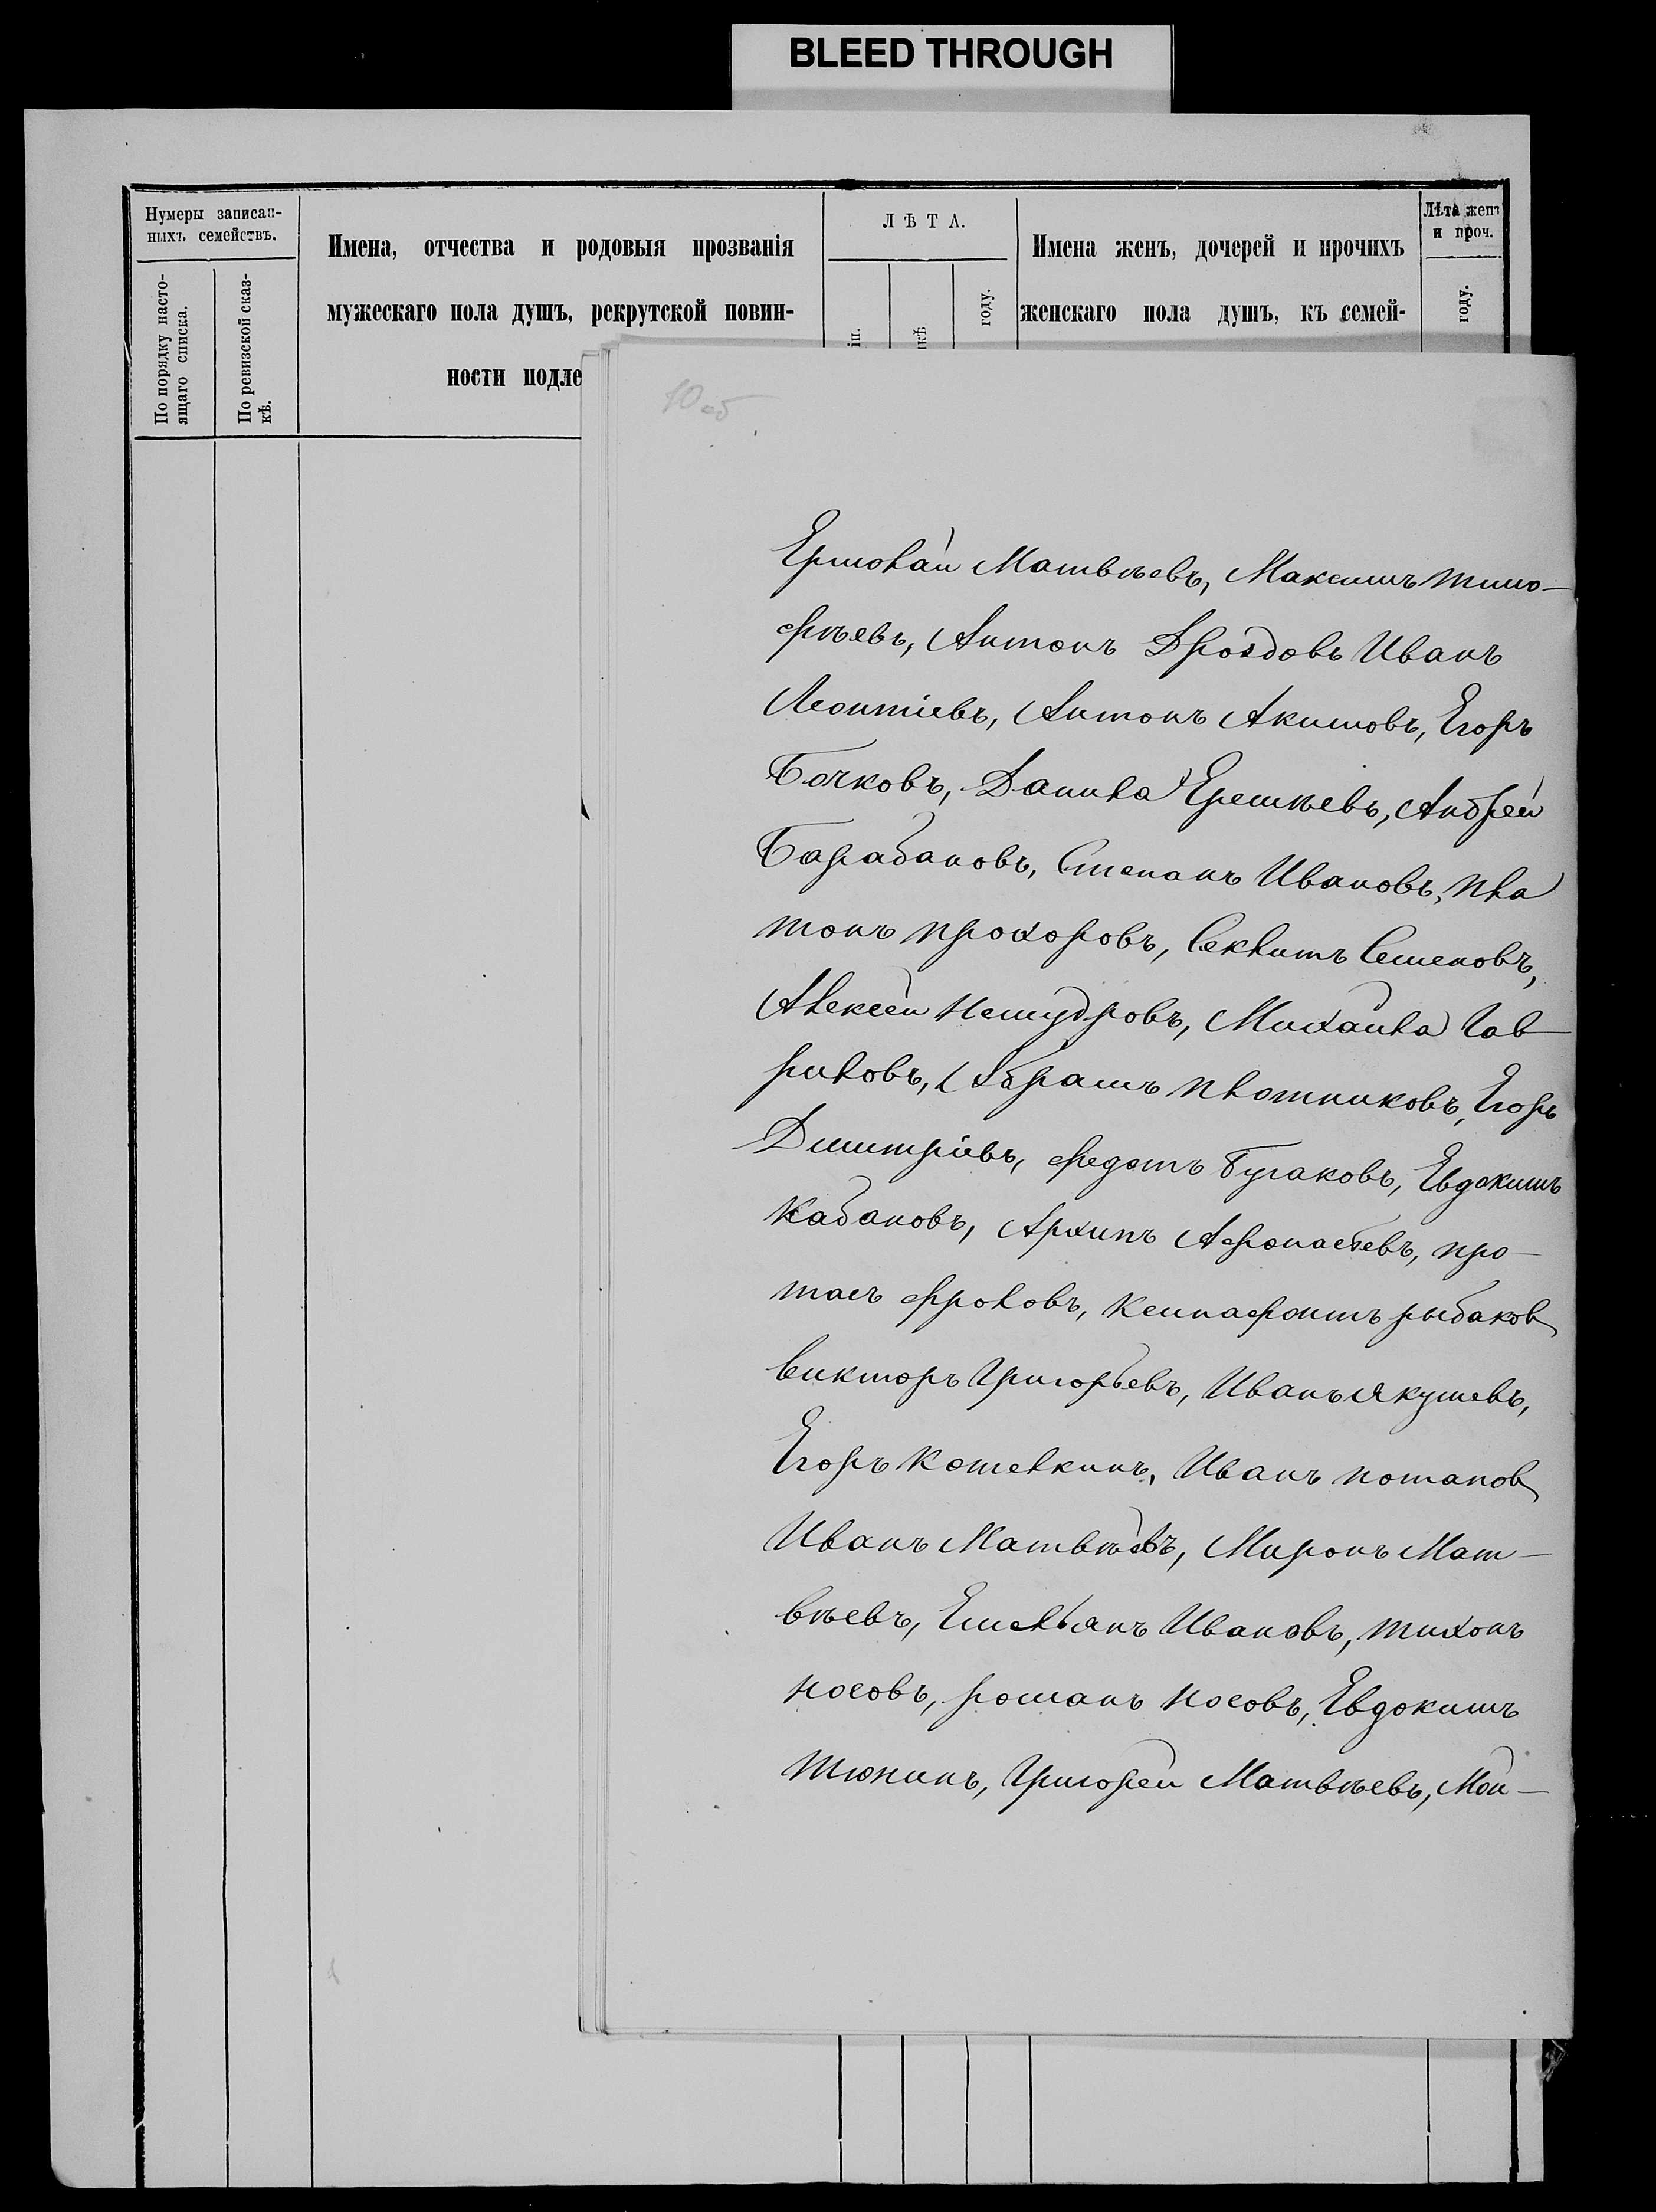 BLEED THROUGH
Нумеры записан-
ныхъ семействъ.
По порядку насто-
ящаго списка.
По ревизской сказ-
кѣ.
Имена, отчества и родовыя прозванія
мужескаго пола душъ, рекрутской повин-
ности подле
ЛѢТА.
году.
Имена женъ, дочерей и прочихъ
женскаго пола душъ, къ семей-
Лѣта женъ
и проч.
году.
10 об
Ермолай Матвѣевъ, Максимъ Тимо-
фѣевъ, Антонъ Дроздовъ Иванъ
Леонтіевъ, Антонъ Акимовъ, Егоръ
Бочковъ, Данила Еремѣевъ, Андрей
Барабановъ, Степанъ Ивановъ, Пла
тонъ Прохоровъ, Семеновъ,
Алексей Немудровъ, Михайла Гав-
риловъ, Абрамъ Плотниковъ, Егоръ
Димитріевъ, Федотъ Бугаковъ, Евдокимъ
Кабановъ, Архипъ Афонасьевъ, Про-
тасъ Фроловъ, Рыбаков
Викторъ Григорьевъ, Иванъ Якушевъ,
Егоръ Кошелкинъ, Иванъ Потапов
Иванъ Матвѣевъ, Миронъ Мат-
вѣевъ, Емельянъ Ивановъ, Тихонъ
Носовъ, Романъ Носовъ, Евдокимъ
Тюнинъ, Григорей Матвѣевъ, Мои-